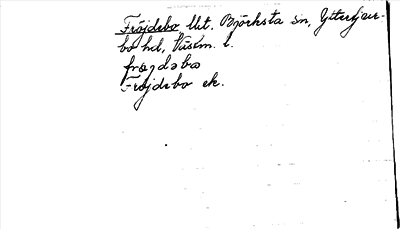 Fröjdebo lht. Björksta sn, Yttertjur-
bo hd, Västm. l.
frøjdəbo
Fröjdebo ek.